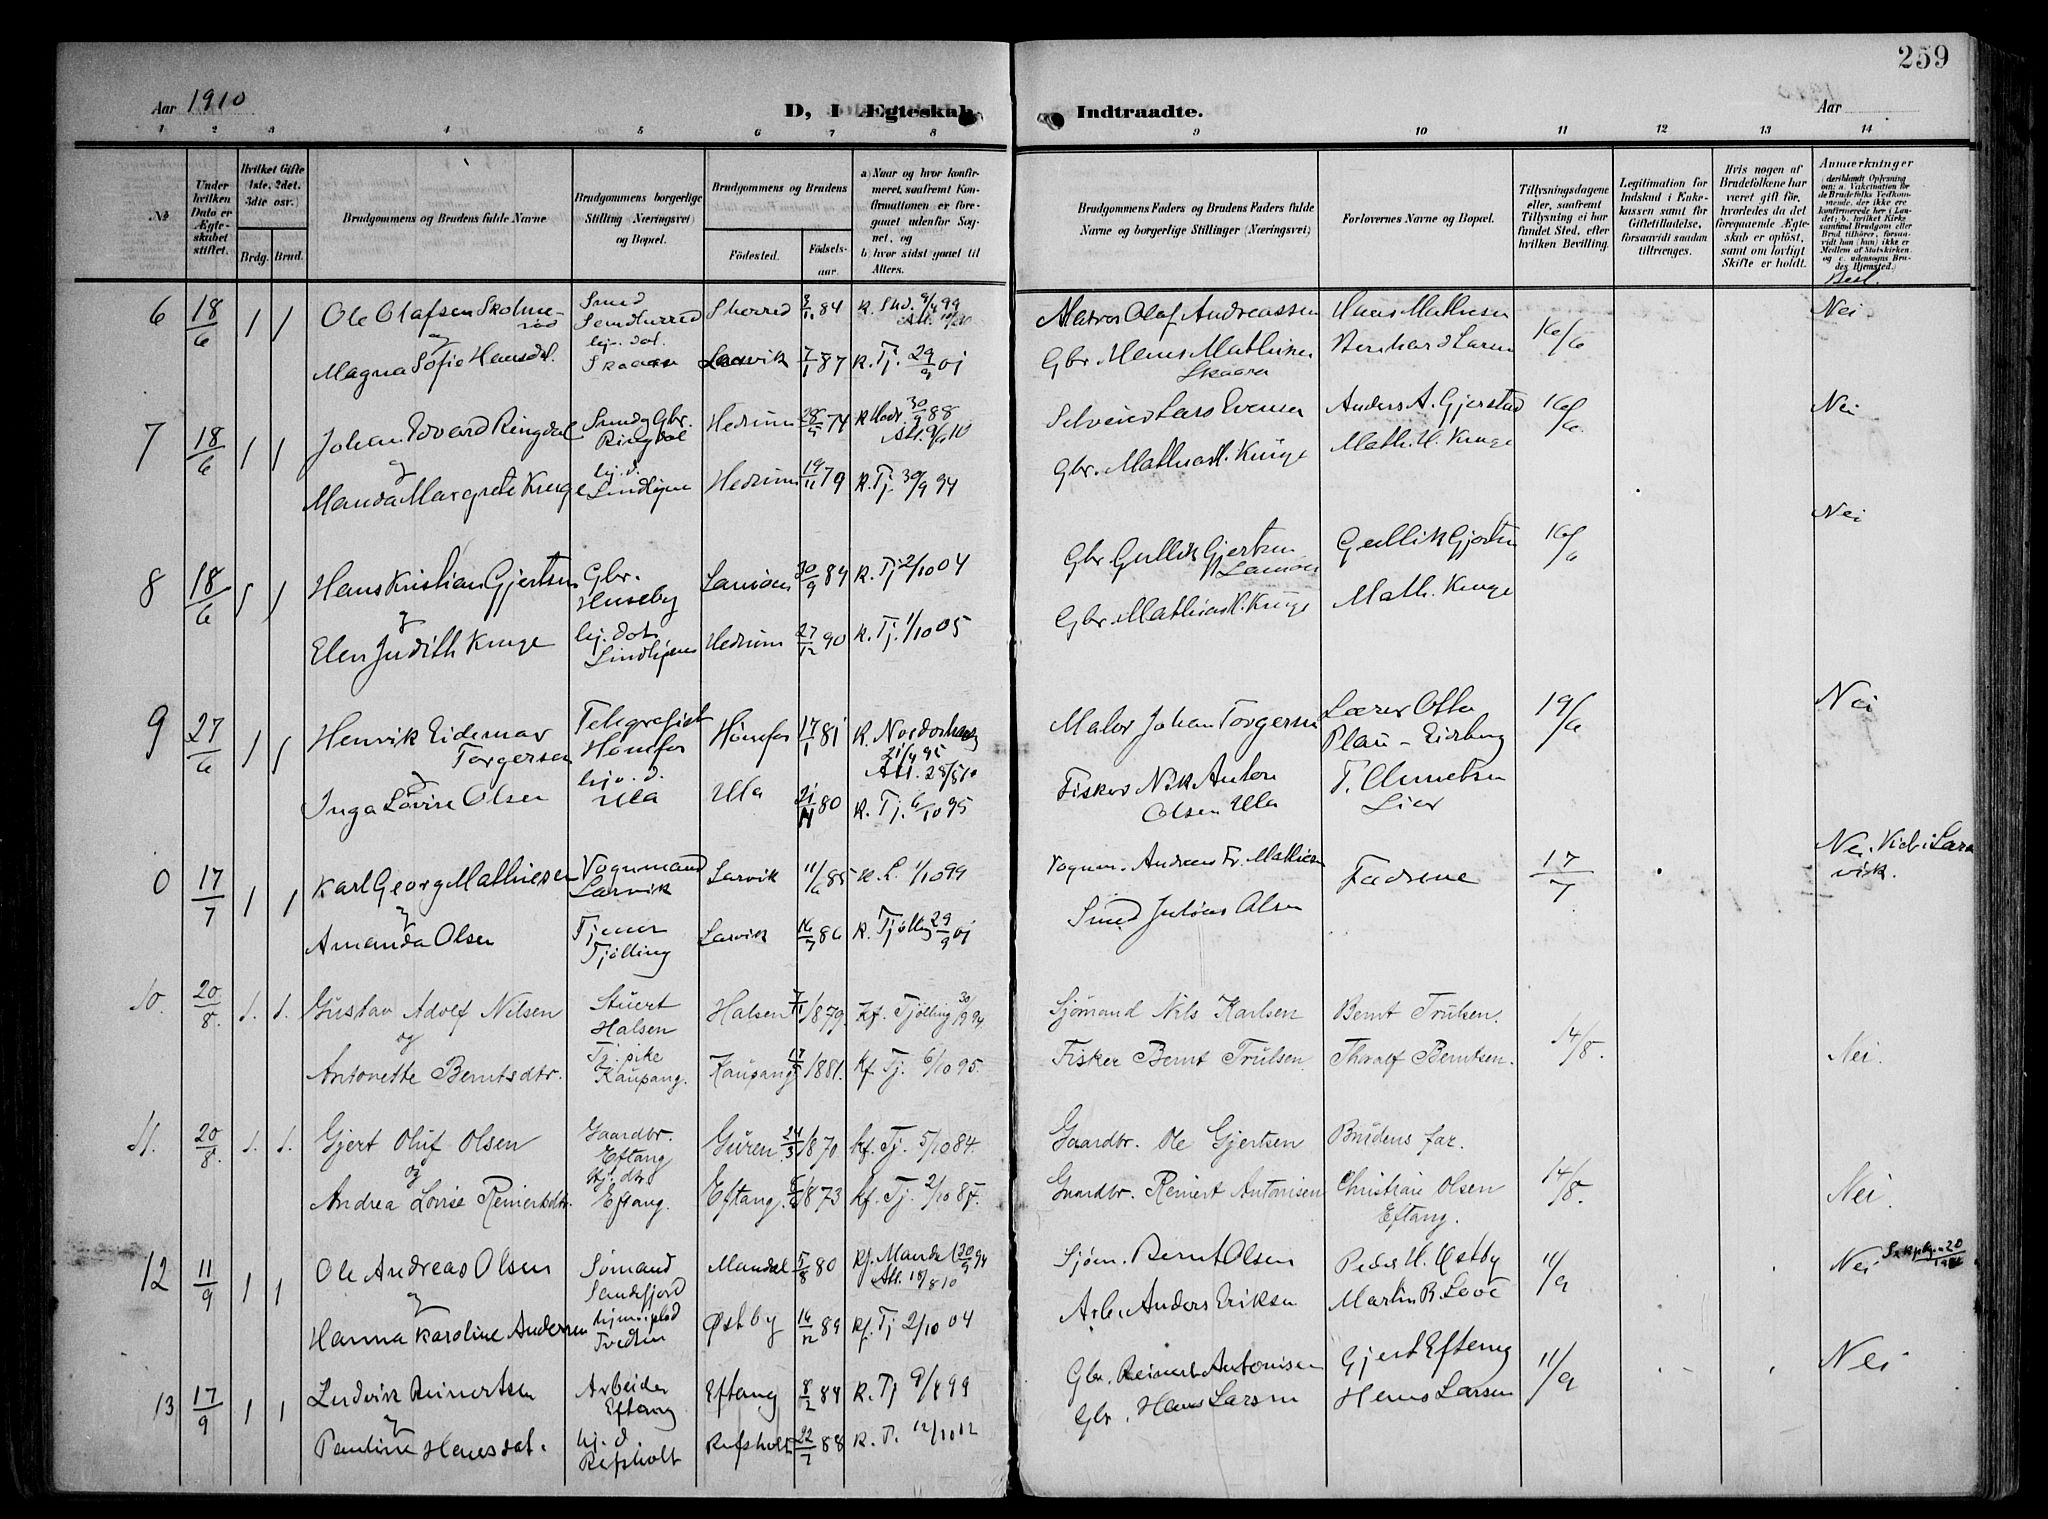 259
Aar 1910
D, I Ægteskab
Indtraadte.
Aar
1 2 3 4 5 6 7 8 9 10 11 12 13 14
No
Under hvilken Dato er Ægteskabet stiftet.
Hvilket Gifte (1ste, 2det, 3die osv.)
Brdg. Brud.
Brudgommens og Brudens fulde Navne
Brudgommens borgerlige Stilling (Næringsvei) og Bopæl.
Brudgommens og Brudens
Fødested.
Fødselsaar.
a) Naar og hvor konfirmeret, saafremt Konfirmationen er foregaaet udenfor Sognet, og
b) hvor sidst gaaet til Alters.
Brudgommens Faders og Brudens Faders fulde Navne og borgerlige Stillinger (Næringsvei)
Forlovernes Navne og Bopæl.
Tillysningsdagene eller, saafremt Tillysning ei har fundet Sted, efter hvilken Bevilling.
Legitimation for Indskud i Enkekassen samt for Giftetilladelse, forsaavidt saadan tiltrænges.
Hvis nogen af Brudefolkene har været gift før, hvorledes da det foregaaende Ægteskab er opløst, samt om lovligt Skifte er holdt.
Anmærkninger
(deriblandt Oplysning om: a. Vakcination for de Brudefolks Vedkommende, der ikke ere konfirmerede her i Landet; b. hvilket Kirkesamfund Brudgom eller Brud tilhører, forsaavidt han (hun) ikke er Medlem af Statskirken og c. udensogns Brudes Hjemsted.)
Besl.
6 18/6 1 1 Ole Olafsen Skolmerød Smed 84 K. 8/4 99 Matros Olaf Andreassen Hans Mathisen 16/6 Nei
og
Magna Sofie Hansdat. Skaaren Larvik 7/1 87 K. Tj. 29/9 01 Gbr. Hans Mathisen Skaaren Bernhard Larsen
7 18/6 1 1 Johan Edvard Ringdal Smed og Gbr. Ringdal Hedrum 74 K. Hedr. 30/9 88 Selveier Lars Evensen Anders A. Gjerstad 16/6 Nei
og
Manda Margrete Kruge hj. d. Lindhjem Hedrum 19/11 79 K. Tj. 30/9 94 Gbr. Mathias H. Kruge Math. H. Kruge
8 18/6 1 1 Hans Kristian Gjertsen Gbr. Huseby Lamøen 30/9 84 K. Tj 2/10 04 Gbr. Gullik Gjertsen Lamøen Gullik Gjertsen 16/6 Nei
og
Elen Judith Kruge hj. dat. Lindhjem Hedrum 27/12 90 K. Tj. 1/10 05 Gbr. Mathias H. Kruge Math. Kruge
9 27/6 1 1 Henrik Eidemar Torgersen Telegrafist Hønefos Hønefos 17/1 81 K. Norderhov 21/4 95 Maler Johan Torgersen Lærer Otto Plau - Eidberg 19/6 Nei
og
Inga Lovise Olsen hj. d. Ula Ula 80 K. Tj. 6/10 95 Fisker Nik Anton Olsen Ula Lier
0 17/7 1 1 Karl Georg Mathiesen Vognmand Larvik Larvik 11/6 85 K. L. 1/10 99 Vognm. Andreas Fr. Mathisen Fædrene 17/7 Nei. Vidn i Larvik.
og
Amanda Olsen Tjener Tjølling Larvik 86 K. Tjølling 29/9 01 Smed Julius Olsen
10. 20/8. 1. 1. Gustav Adolf Nilsen Stuert Halsen Halsen 1879. Kf. Tjølling 30/9 94 Sjømand Nils Karlsen Bernt Trulsen. 14/8. Nei.
og
Antonette Berntsdtr. Tj. pike Kaupang. Kaupang 1881. Kf Tj. 6/10 95. Fisker Bernt Trulsen Thoralf Berntsen.
11. 20/8. 1. 1. Gjert Oluf Olsen Gaardbr. Eftang Guren. 24/3 1870 kf. Tj. 5/10 84. Gaardbr. Ole Gjertsen Brudens far. 14/8. Nei.
og
Andrea Lovise Reinertsdtr. Hj. dtr. Eftang. Eftang. 1873 kf. Tj. 2/10 87. Gaardbr. Reinert Antonisen Christian Olsen Eftang.
12 11/9 1 1 Ole Andreas Olsen Sømand Sandefjord Mandal 5/8 80 Kf. Mandal 30/9 94 Att. 18/8 10 Sjøm. Bernt Olsen Peder H. Østby 11/9 Nei
og
Hanna Karoline Andersen Østby 16/12 89 Kf. Tj 2/10 04 Arb. Anders Eriksen Martin B. Love
13 17/9 1 1 Ludvik Reinertsen Arbeider Eftang Eftang 8/12 84 K. Tj 99 Gbr. Reinert Antonisen Gjert Eftang 11/9 Nei
og
Pauline Hansdat. hj. d Refsholt Refsholt 22/7 88 K. T. 12/10 02 Gbr. Hans Larsen Hans Larsen